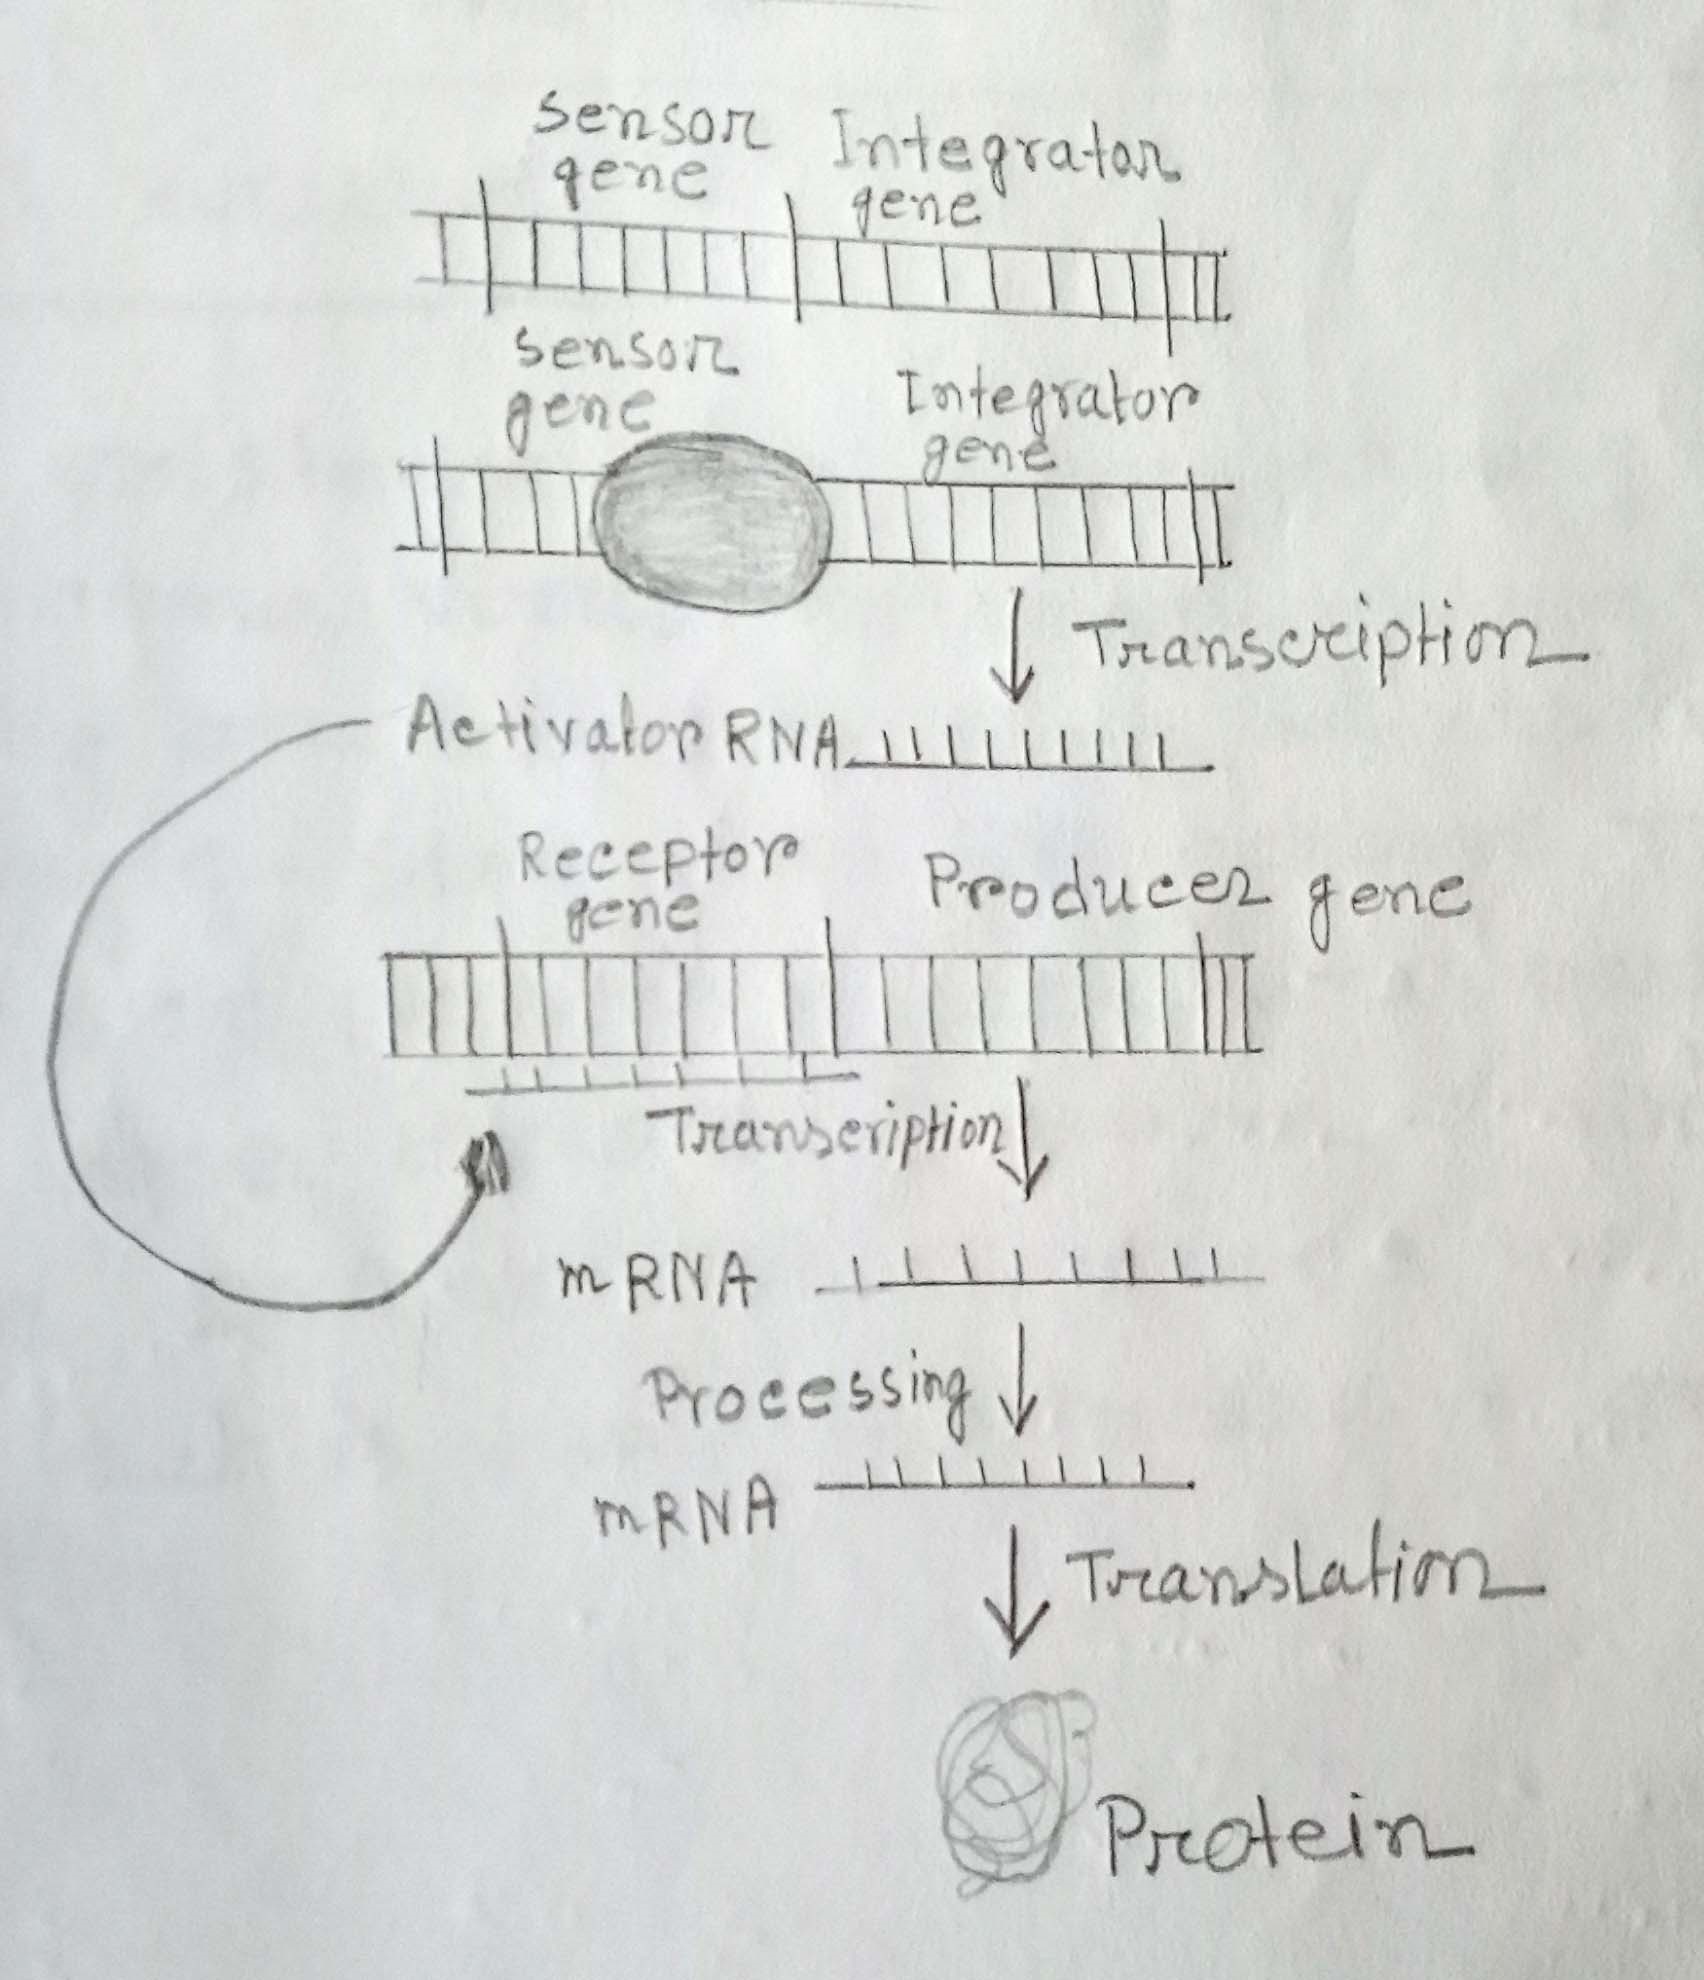 Sensor
gene
Integrator
gene
Sensor
gene
Integrator
gene
Transcription
Activator RNA
Receptor
gene
Producer gene
Transcription
mRNA
Processing
mRNA
Translation
Protein